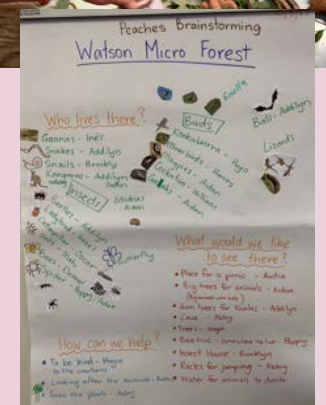 Peaches Brainstorming
Watson Micro Forest
Who lives there?
Goanas - Inés
Snakes - Addilyn
Snails - Brookly
Kangaroo - Addilyn
Insects
Beetles - Addilyn
Ladybug
Caterpillar - Oscar
Bees
Spider - Poppy/Aidan
Butterfly
Birds
Kookaburra - Hugo
Magpies - Aidan
Cockatoo - William
Galahs - Aidan
Koalla
Bats - Addilyn
Lizards
What would we like
to see there?
Place for a picnic - Austin
Big trees for animals - Aidan
Gum trees for Koalas - Addilyn
Cave - Abley
Trees - Hugo
Bee hive - Somewhere to live - Poppy
Insect House - Brooklyn
Rocks for jumping - Abley
Water for animals to drink
How can we help?
To be kind - Hugo
to the creatures
Looking after the animals
Grow the plants - Abley